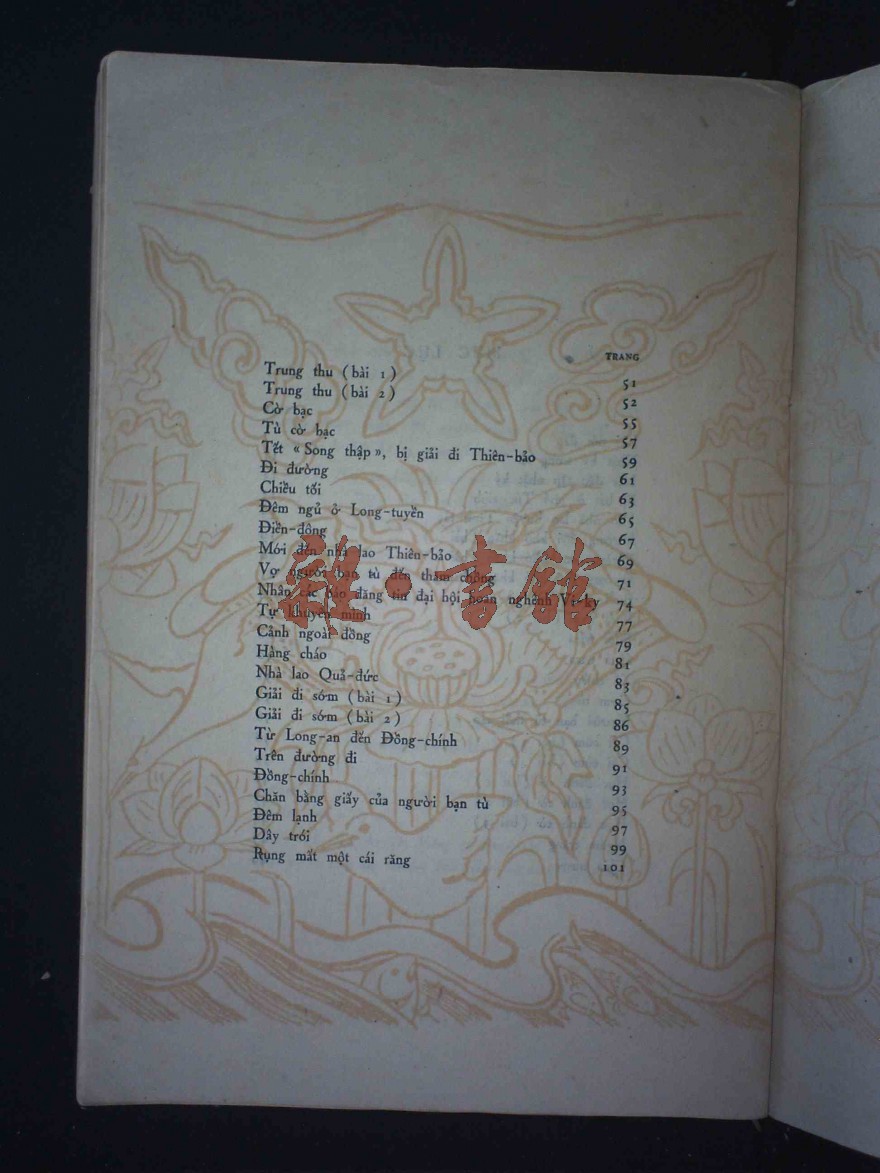 TRANG
Trung thu (bài 1) 51
Trung thu (bài 2) 52
Cờ bạc 55
Tù cờ bạc 57
Tết « Song thập », bị giải đi Thiên-bảo 59
Đi đường 61
Chiều tối 63
Đêm ngủ ở Long-tuyền 65
Điền-đông 67
Mới đến nhà lao Thiên-bảo 69
Vợ người bạn tù đến thăm chồng 71
Nhân các báo đăng tin đại hội hoan nghênh Vi-ky 74
Tự khuyên mình 77
Cảnh ngoài đồng 79
Hàng cháo 81
Nhà lao Quả-đức 83
Giải đi sớm (bài 1) 85
Giải đi sớm (bài 2) 86
Từ Long-an đến Đồng-chính 89
Trên đường đi 91
Đồng-chính 93
Chăn bằng giấy của người bạn tù 95
Đêm lạnh 97
Dây trói 99
Rụng mất một cái răng 101
雜·書館